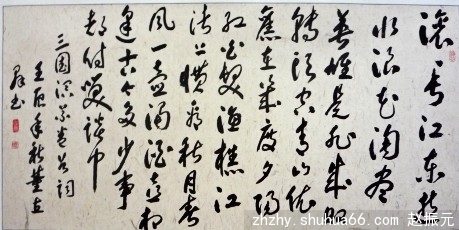 滚〻长江东逝
水浪花淘尽
英雄是非成败
转头空青山依
旧在几度夕阳
红白发渔樵江
渚上惯看秋月春
风一壶浊酒喜相
逢古今多少事
都付笑谈中
三国演义卷首词
年秋
书
zhzhy.shuhua66.com 赵振元